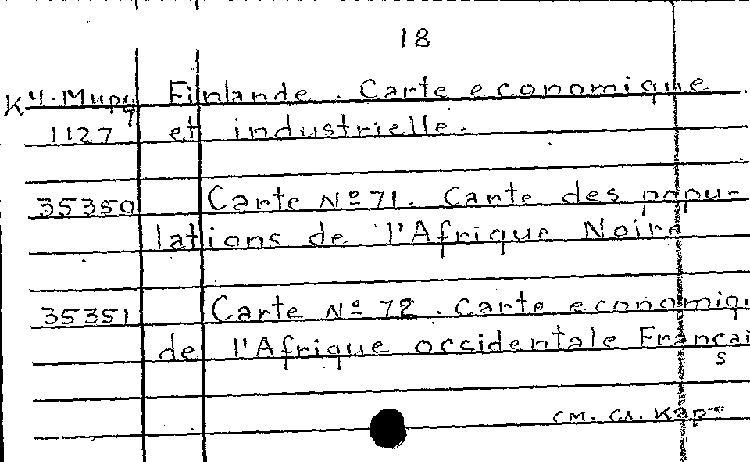 18
Finlande. Carte economique
1127 et industrielle.
35350 Carte Nº 71. Carte des popu-
lations de l'Afrique Noire
35351 Carte Nº 72. Carte economiqu
de l'Afrique occidentale Francai
s
см. сл. кар-